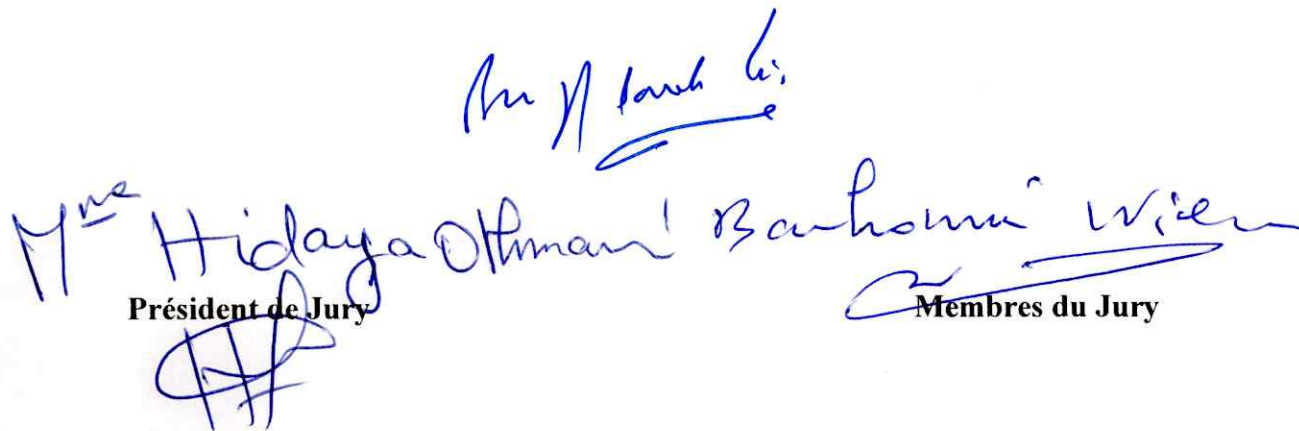 Mme Hidaya Othmani Barhoumi Wiem
Président de Jury Membres du Jury